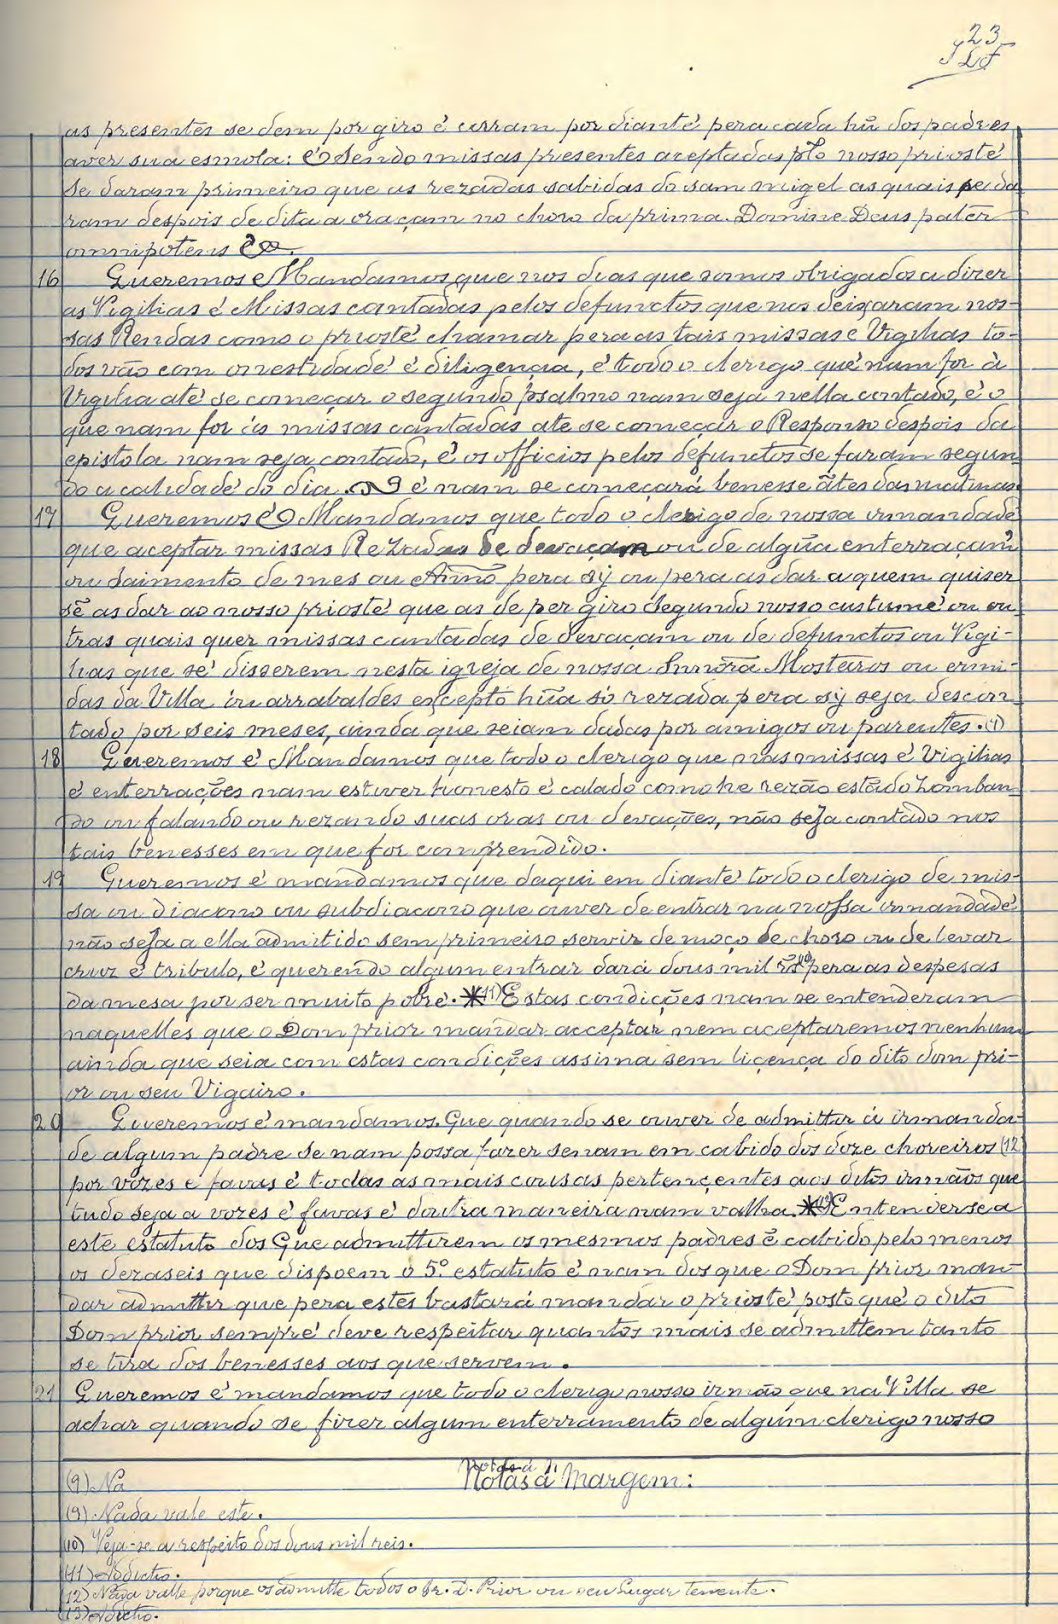 23
as presentes se dem por giro é corram por diante pera cada hũ dos padres
aver sua esmola: é sendo missas presentes aceptadas plo nosso prioste
se daram primeiro que as rezadas sabidas do sam migel as quais se da
ram despois de dita a oraçam no choro da prima. Domine Deus pater
omnipotens
16 Queremos e Mandamos que nos dias que somos obrigados a dizer
as Vigilias é Missas cantadas pelos defunctos que nos deixaram nos-
sas Rendas como o prioste chamar pera as tais missas e Vigilias to-
dos vão com onestidade é diligença, é todo o clerigo que nam for á
Vigilia até se começar o segundo psalmo nam seja nella contado, é o
que nam for ás missas cantadas ate se começar o Responso despois da
epistola nam seja contado, é os officios pelos defunctos se faram segun
do a calidade do dia. é nam se começará benesse ãtes das matinas
17 Queremos é Mandamos que todo o clerigo de nossa irmandade
que aceptar missas Rezadas de devaçam ou de algũa enterraçam
ou saimento de mes ou Anno pera sÿ ou pera as dar a quem quiser
sẽ as dar ao nosso prioste que as de per giro segundo nosso custume ou ou
tras quais quer missas cantadas de devaçam ou de defunctos ou Vigi-
lias que se disserem nesta igreja de nossa Sunõra Mosteiros ou ermi-
das da Villa ou arrabaldes excepto hũa só rezada pera sÿ seja descon
tado por seis meses, ainda que seiam dadas por amigos ou parentes.
18 Queremos é Mandamos que todo o clerigo que nas missas é Vigilias
é enterrações nam estiver honesto é calado como he rezão estãdo zomban
do ou falando ou rezando suas oras ou devações, não seja contado nos
tais benesses em que for comprendido.
19 Queremos é mandamos que daqui em diante todo o clerigo de mis-
sa ou diacono ou subdiacono que ouver de entrar na nossa irmandade
não seja a ella admitido sem primeiro servir de moço de choro ou de levar
cruz é tribulo, é querendo algum entrar dará dous mil rs pera as despesas
da mesa por ser muito pobre. * (11) Estas condições nam se entenderam
naquelles que o Dom prior mandar acceptar nem aceptaremos nenhum
ainda que seia com estas condições assima sem liçença do dito dom pri-
or ou seu Vigairo.
20 Queremos é mandamos. Que quando se ouver de admittir á irmanda-
de algum padre se nam possa fazer senam em cabido dos doze choreiros (12)
por vozes e favas é todas as mais cousas pertençentes aos ditos irmãos que
tudo seja a vozes é favas é doutra maneira nam valha. * Entenderse a
este estatuto dos Que admittirem os mesmos padres ẽ cabido pelo menos
os dezaseis que dispoem o 5º. estatuto é nam dos que o Dom prior man-
dar admittir que pera estes bastará mandar o prioste, posto que o dito
Dom prior sempre deve respeitar quantos mais se admittem tanto
se tira dos benesses aos que servem.
21 Queremos é mandamos que todo o clerigo nosso irmão que na Villa se
achar quando se fizer algum enterramento de algúm clerigo nosso
Notas á Margem:
(9) Na
(9) Nada vale este.
(10) Veja-se a respeito dos dous mil reis.
(11) Addicto.
(12) Nada valle porque os admitte todos o Sr. D. Prior ou seu Lugar tenente.
(13) Addicto.